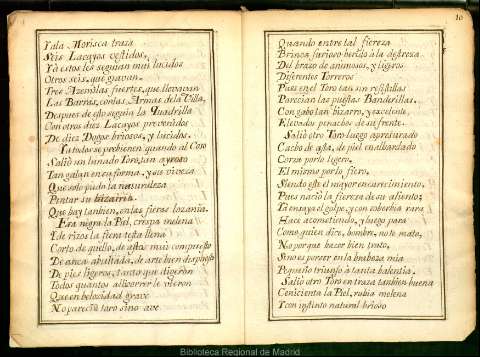 Y a la Morisca traza
Seis Lacayos vestidos,
Y à estos les seguian mui lucidos
Otros seis, que guiavan
Tres Azemilas fuertes, que llevavan
Las Barras, con las Armas de la Villa,
Despues de esto seguia la Quadrilla
Con otros diez Lacayos prevenidos
De diez Dogos briosos, y lucidos.
Ya todos se previenen quando al Coso
Salió un lunado Toro, tan ayroso
Tan galan en su forma, y su viveza
Que solo pudo la naturaleza
Pintar su bizarria
Que hay tambien, en las fieras lozania.
Era negra la Piel, crespa melena
Y de rizos la fiera testa llena
Corto de cuello, de astas mui compuesto
De anca abultada, de arte bien dispuesto
De pies ligeros, tanto que dixeron
Todos quantos al correr le vieron
Que en velocidad grave
No parecia toro sino ave
10
Quando entre tal fiereza
Brinca furioso herido à la destreza
Del brazo de animosos, y ligeros
Diferentes Toreros
Pues en el Toro tan sin resistillas
Parecian las puestas Banderillas,
Con gala tan bizarra, y excelente
Elevados penachos de su frente.
Salió otro Toro luego apresurado
Cacho de asta, de piel enalbardado
Corza por lo ligero,
El mismo por lo fiero,
Siendo este el mayor encarecimiento,
Pues nacio la fiereza de su asiento;
Ya ensaya el golpe, y con sobervia rara
Hace acometiendo, y luego para
Como quien dice, hombre, no te mato,
No porque hacer bien trato,
Sino es porser en la braboza mia
Pequeño triunfo à tanta balentia.
Salio otro Toro en traza tambien buena
Cenicienta la Piel, rubia melena
Y con instinto natural brioso
Biblioteca Regional de Madrid